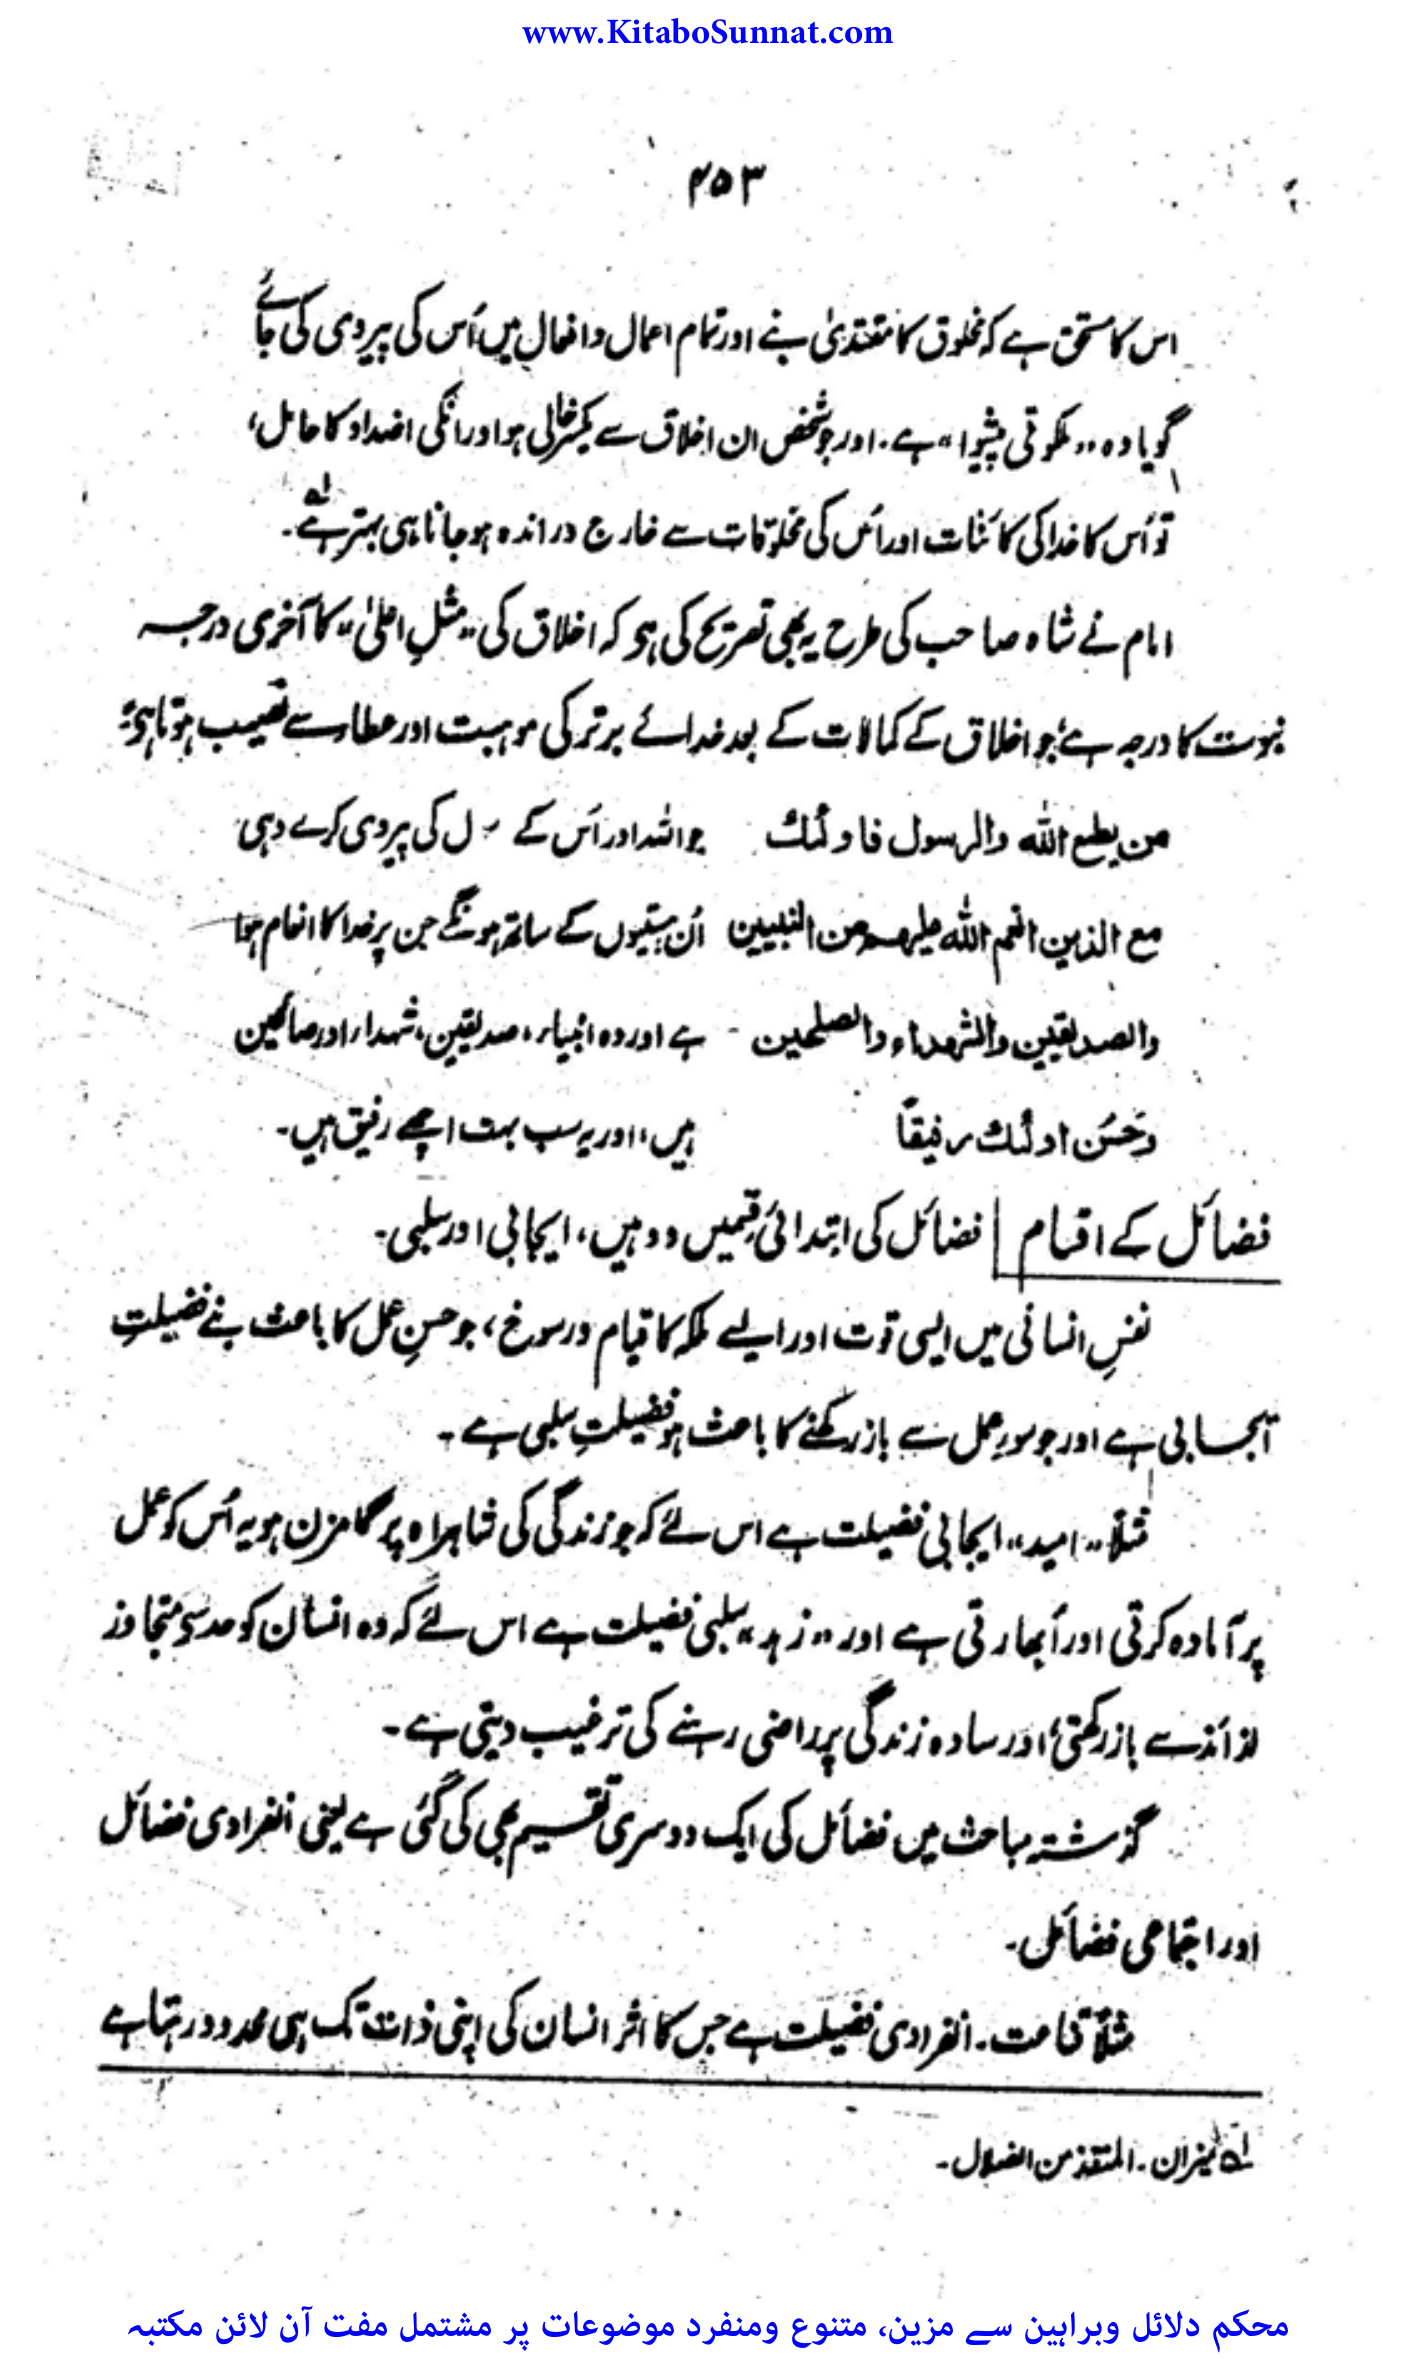 www.KitaboSunnat.com
۴۵۳
اس کا مستحق ہے کہ مخلوق کا مقتدیٰ بنے اور تمام اعمال و افعال میں اُس کی پیروی کی جائے
گویا وہ ,,ملکوتی پیشوا،، ہے۔ اور جو شخص ان اخلاق سے یکسر خالی ہو اور انکی اضداد کا حامل،
تو اُس کا خدا کی کائنات اور اُس کی مخلوقات سے خارج و راندہ ہو جانا ہی بہتر ہے۔ لہ
امام نے شاہ صاحب کی طرح یہ بھی تصریح کی ہو کہ اخلاق کی ,,مثلِ اعلیٰ،، کا آخری درجہ
نبوت کا درجہ ہے، جو اخلاق کے کمالات کے بعد خدائے برتر کی موہبت اور عطاء سے نصیب ہوتا ہی
من یطع اللہ والرسول فاولٰئک جو اللہ اور اُس کے ر ل کی پیروی کرے وہی
مع الذین انعم اللہ علیھم من النبیین اُن ہستیوں کے ساتھ ہونگے جن پر خدا کا انعام ہوا
والصدیقین والشھداء والصلحین ہے اور وہ انبیاء، صدیقین، شہداء اور صالحین
وحَسُن اولٰئک رفیقًا ہیں، اور یہ سب بہت اچھے رفیق ہیں۔
فضائل کے اقسام فضائل کی ابتدائی قسمیں دو ہیں، ایجابی اور سلبی۔
نفسِ انسانی میں ایسی قوت اور ایسے ملکہ کا قیام و رسوخ، جو حسنِ عمل کا باعث بنے فضیلتِ
ایجابی ہے اور جو سوءِ عمل سے باز رکھنے کا باعث ہو فضیلتِ سلبی ہے۔
مثلاً ,,امید،، ایجابی فضیلت ہے اس لئے کہ جو زندگی کی شاہراہ پر گامزن ہو یہ اُس کو عمل
پر آمادہ کرتی اور اُبھارتی ہے اور ,,زہد،، سلبی فضیلت ہے اس لئے کہ وہ انسان کو حد سے متجاوز
لذائذ سے باز رکھتی اور سادہ زندگی پر راضی رہنے کی ترغیب دیتی ہے۔
گذشتہ مباحث میں فضائل کی ایک دوسری تقسیم بھی کی گئی ہے یعنی انفرادی فضائل
اور اجتماعی فضائل۔
مثلاً قناعت۔ انفرادی فضیلت ہے جس کا اثر انسان کی اپنی ذات تک ہی محدود رہتا ہے
لہ میزان۔ المنقذ من الضلال۔
محکم دلائل وبراہین سے مزین، متنوع ومنفرد موضوعات پر مشتمل مفت آن لائن مکتبہ